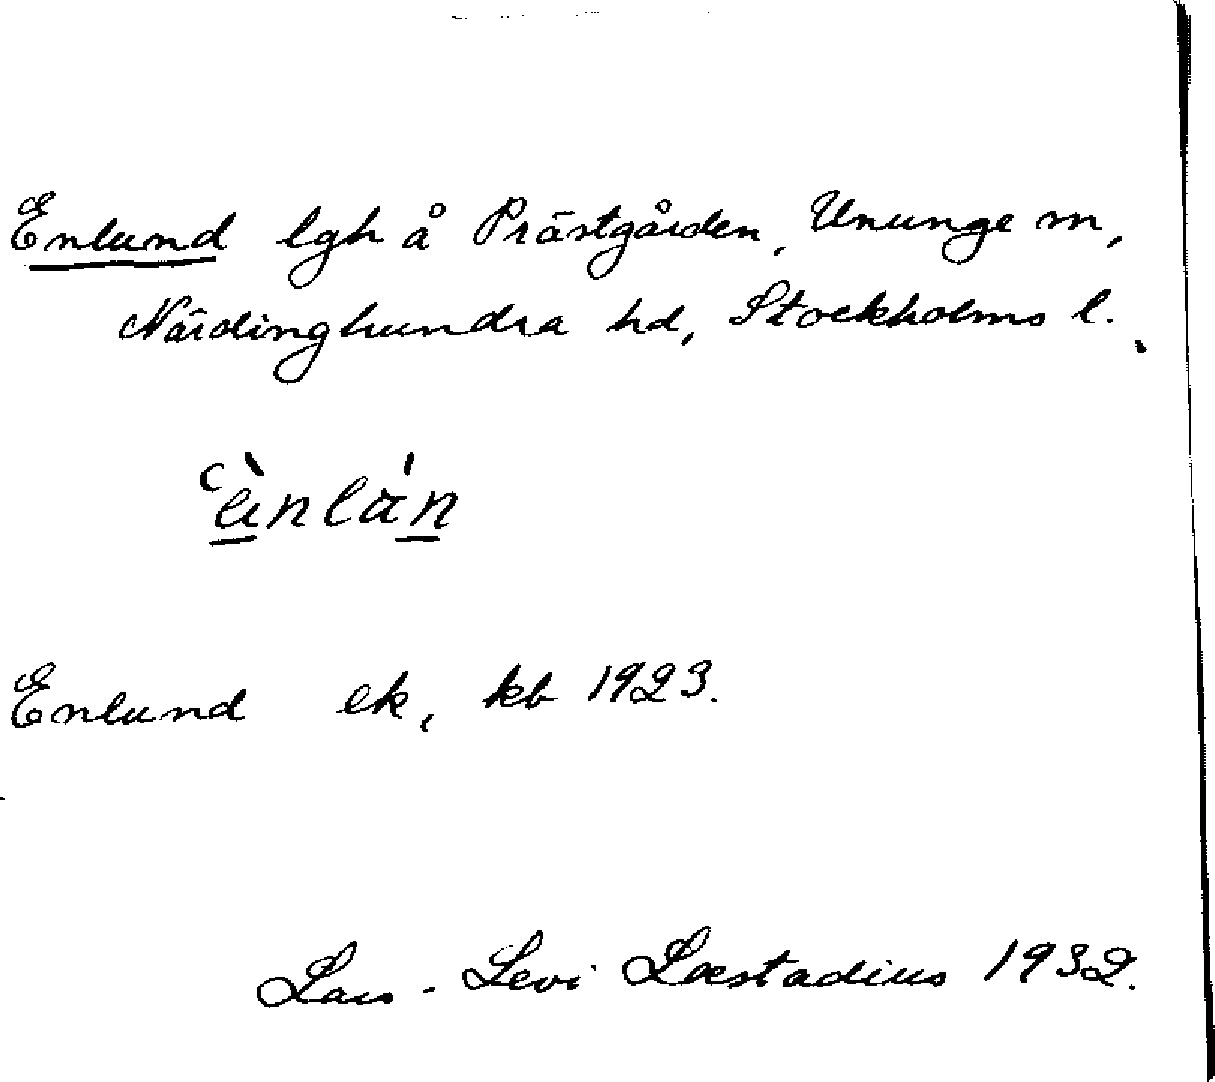 Enlund lgh å Prästgården, Ununge sn,
Närdinghundra hd, Stockholms l.
Enlund ek, kb 1923.
Lars-Levi Læstadius 1932.